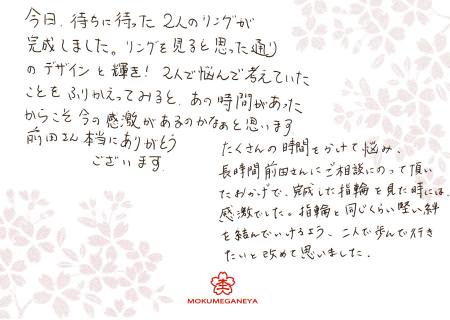 今日、待ちに待った2人のリングが
完成しました。リングを見ると思った通り
のデザインと輝き！2人で悩んで考えていた
ことをふりかえってみると、あの時間があった
からこそ今の感激があるのかなぁと思います
前田さん本当にありがとう
ございます。
たくさんの時間をかけて悩み、
長時間前田さんにご相談にのって頂い
たおかげで、完成した指輪を見た時には、
感激でした。指輪と同じくらい堅い絆
を結んでいけるよう、二人で歩んで行き
たいと改めて思いました。
MOKUMEGANEYA